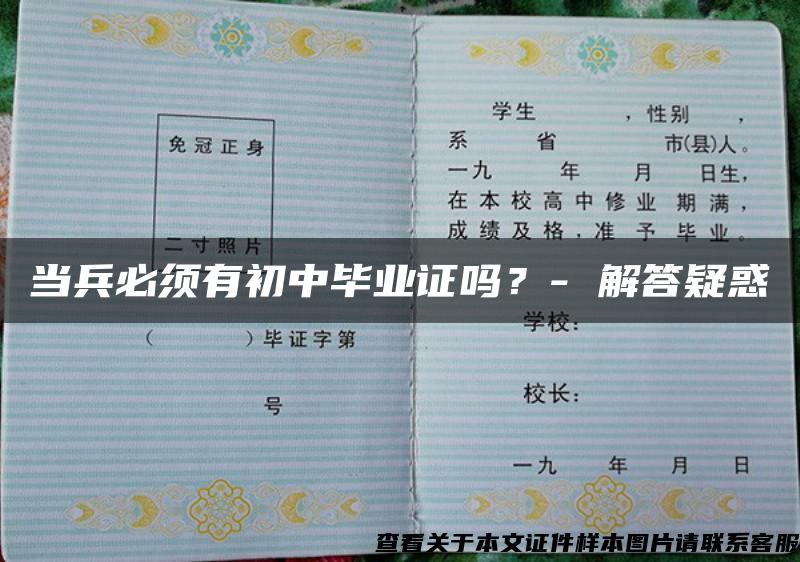 免冠正身
二寸照片
（ ）毕证字第
号
学生 ，性别 ，
系 省 市(县)人。
一九 年 月 日生，
在本校高中修业 期满，
成绩及格，准予毕业。
当兵必须有初中毕业证吗？- 解答疑惑
学校：
校长：
一九 年 月 日
查看关于本文证件样本图片请联系客服